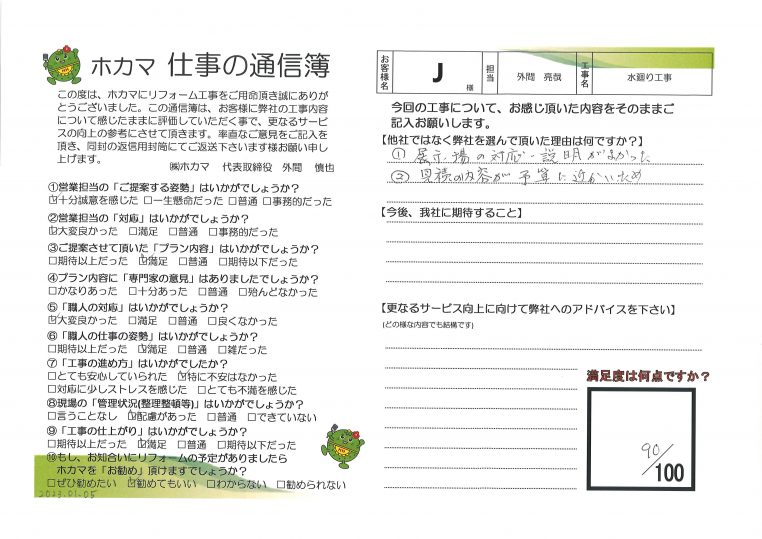 ホカマ 仕事の通信簿
この度は、ホカマにリフォーム工事をご用命頂き誠にありが
とうございました。この通信簿は、お客様に弊社の工事内容
について感じたままに評価していただく事で、更なるサービ
スの向上の参考にさせて頂きます。率直なご意見をご記入を
頂き、同封の返信用封筒にてご返送下さいます様お願い申し
上げます。
㈱ホカマ 代表取締役 外間 慎也
①営業担当の「ご提案する姿勢」はいかがでしょうか?
☑十分誠意を感じた □一生懸命だった □普通 □事務的だった
②営業担当の「対応」はいかがでしょうか?
☑大変良かった □満足 □普通 □事務的だった
③ご提案させて頂いた「プラン内容」はいかがでしょうか?
□期待以上だった ☑満足 □普通 □期待以下だった
④プラン内容に「専門家の意見」はありましたでしょうか?
□かなりあった □十分あった □普通 □殆んどなかった
⑤「職人の対応」はいかがでしょうか?
☑大変良かった □満足 □普通 □良くなかった
⑥「職人の仕事の姿勢」はいかがでしょうか?
□期待以上だった ☑満足 □普通 □雑だった
⑦「工事の進め方」はいかがでしたか?
□とても安心していられた ☑特に不安はなかった
□対応に少しストレスを感じた □とても不満を感じた
⑧現場の「管理状況(整理整頓等)」はいかがでしょうか?
□言うことなし ☑配慮があった □普通 □できていない
⑨「工事の仕上がり」はいかがでしょうか?
□期待以上だった ☑満足 □普通 □期待以下だった
⑩もし、お知合いにリフォームの予定がありましたら
ホカマを「お勧め」頂けますでしょうか?
□ぜひ勧めたい ☑勧めてもいい □わからない □勧められない
2023.01.05
お客様名 J 様 担当 外間 亮哉 工事名 水廻り工事
今回の工事について、お感じ頂いた内容をそのままご
記入お願します。
【他社ではなく弊社を選んで頂いた理由は何ですか?】
① 展示場の対応・説明がよかった
② 見積の内容が予算に近かいため
【今後、我社に期待すること】
【更なるサービス向上に向けて弊社へのアドバイスを下さい】
(どの様な内容でも結構です)
満足度は何点ですか?
90/100